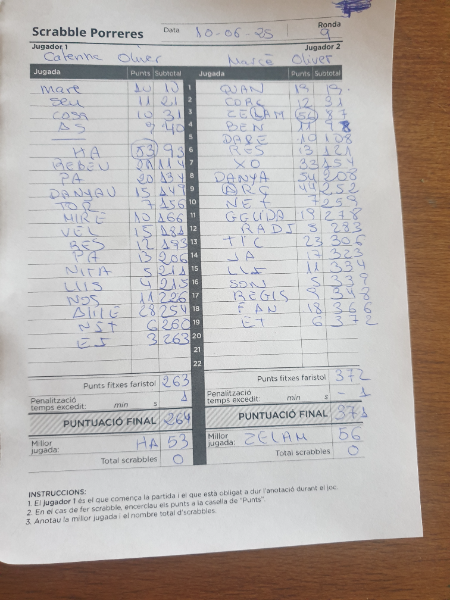 Scrabble Porreres Data 10-06-25 Ronda 9
Jugador 1 Jugador 2
Caterina Oliver Mercè Oliver
Jugada Punts Subtotal Jugada Punts Subtotal
mare 10 10 1 QUAN 19 19
seu 11 21 2 12 31
COSA 10 31 3 ZELAM 56 87
9 40 4 BEN 11 98
5 10 108
HA 53 93 6 RES 13 121
7 XO 33 154
PA 20 137 8 DANYA 54 208
15 149 9 44 252
7 156 10 NET 7 259
MIRE 10 166 11 19 278
VEL 15 181 12 RADI 5 283
RES 12 193 13 TIC 23 306
PA 13 206 14 JA 17 323
NITA 5 211 15 11 334
LUIS 4 215 16 SON 5 339
NOS 11 226 17 REGIS 9 348
28 254 18 FAN 18 366
6 260 19 ET 6 372
ES 3 263 20
21
22
Punts fitxes faristol 263 Punts fitxes faristol 372
Penalització temps excedit: min s 1 Penalització temps excedit: min s - 1
PUNTUACIÓ FINAL 264 PUNTUACIÓ FINAL 371
Millor jugada: HA 53 Millor jugada: ZELAM 56
Total scrabbles 0 Total scrabbles 0
INSTRUCCIONS:
1. El jugador 1 és el que comença la partida i el que està obligat a dur l'anotació durant el joc.
2. En el cas de fer scrabble, encercleu els punts a la casella de "Punts".
3. Anotau la millor jugada i el nombre total d'scrabbles.